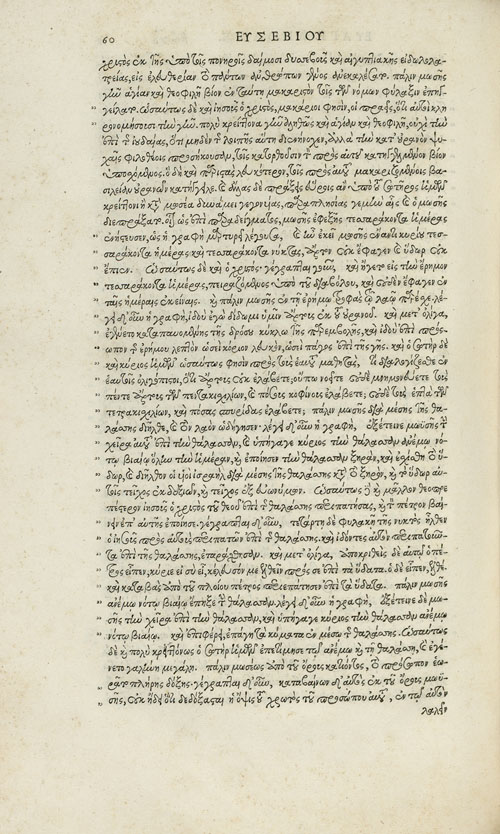 60 ΕΥΣΕΒΙΟΥ
χριστὸς ἐκ τῆς ὑπὸ τοῖς πονηροῖς δαίμοσι δυσσεβοῦς καὶ αἰγυπτιακῆς εἰδωλολα-
τρείας, εἰς ἐλευθερίαν τὸ πάντων ἀνθρώπων γένος ἀνεκαλέσατο. πάλιν μωσῆς
ζωὴν ἁγίαν καὶ θεοφιλῆ βίον ἐνταῦτῃ μακαριστὸν τοῖς τὸν νόμον φυλάξιν ἐπηγ-
γείλατο. ὡσαύτως δὲ καὶ ἰησοῦς ὁ χριστὸς, μακάριοι φησὶν, οἱ πραεῖς, ὅτι αὐτοὶ κλη
ρονομήσουσι τὴν γῆν. πολὺ κρείττονα γῆν ἀληθῶς καὶ ἁγίαν καὶ θεοφιλῆ, οὐχὶ τὴν
ἐπὶ τῆς ἰουδαίας, ὅτι μηδὲν τῆς λοιπῆς αὕτη διενήνοχεν, ἀλλὰ τὴν κατ' οὐρανὸν ψυ-
χαῖς φιλοθέοις προσήκουσαν, τοῖς κατορθοῦσι τὸν πρὸς αὐτοῦ κατηγγελμένον βίον
ὑποσχόμενος. ὁ δὲ καὶ τρισὶ λευκότερον, τοῖς πρὸς αὐτοῦ μακαριζομένοις βα-
σιλείαν οὐρανῶν κατήγγειλε. καὶ ἄλλας δὲ πράξεις εὕροις ἂν ὑπὸ τοῦ σωτῆρος ἡμῶν
κρείττονι καὶ κατὰ μωσέα δυνάμει γεγονυίας, παραπλησίας γε μὴν αἷς καὶ ὁ μωσῆς
διεπράξατο. οἷον ὡς ἐπὶ παραδείγματος, μωσῆς ἐφεξῆς τεσσαράκοντα ἡμέρας
ἐνήστευσεν, ὡς ἡ γραφὴ μαρτυρεῖ λέγουσα, καὶ ἦν ἐκεῖ μωσῆς ἐναντι κυρίου τεσ-
σαράκοντα ἡμέρας καὶ τεσσαράκοντα νύκτας, ἄρτον οὐκ ἔφαγεν καὶ ὕδωρ οὐκ
ἔπιεν. ὡσαύτως δὲ καὶ ὁ χριστός· γέγραπται γοῦν, καὶ ἤγετο εἰς τὴν ἔρημον
τεσσαράκοντα ἡμέρας, πειραζόμενος ὑπὸ τοῦ διαβόλου, καὶ οὐδὲν ἔφαγεν ἐν
ταῖς ἡμέραις ἐκείναις. καὶ πάλιν μωσῆς ἐν τῇ ἐρήμῳ τροφὰς τῷ λαῷ παρέσχε. λέ-
γει δ' οὖν ἡ γραφή, ἰδοὺ ἐγὼ δίδωμι ὑμῖν ἄρτους ἐκ τοῦ οὐρανοῦ. καὶ μετ' ὀλίγα,
ἐγένετο καταπαυομένης τῆς δρόσου κύκλῳ τῆς παρεμβολῆς, καὶ ἰδοὺ ἐπὶ πρόσ-
ωπον τῆς ἐρήμου λεπτὸν ὡσεὶ κόριον λευκὸν, ὡσεὶ πάγος ἐπὶ τῆς γῆς. καὶ ὁ σωτὴρ δὲ
καὶ κύριος ἡμῶν ὡσαύτως φησὶν πρὸς τοὺς ἑαυτοῦ μαθητάς, τί διαλογίζεσθε ἐν
ἑαυτοῖς ὀλιγόπιστοι, ὅτι ἄρτους οὐκ ἐλάβετε; οὔπω νοεῖτε οὐδὲ μνημονεύετε τοὺς
πέντε ἄρτους τῶν πεντακισχιλίων, καὶ πόσους κοφίνους ἐλάβετε; οὐδὲ τοὺς ἑπτὰ τῶν
τετρακισχιλίων, καὶ πόσας σπυρίδας ἐλάβετε; πάλιν μωσῆς διὰ μέσης τῆς θα-
λάσσης διῆλθε, καὶ τὸν λαὸν ὡδήγησεν· λέγει δ' οὖν ἡ γραφή, ἐξέτεινε μωϋσῆς τὴν
χεῖρα αὐτοῦ ἐπὶ τὴν θάλασσαν, καὶ ὑπήγαγε κύριος τὴν θάλασσαν ἀνέμῳ νό-
τῳ βιαίῳ ὅλην τὴν ἡμέραν, καὶ ἐποίησεν τὴν θάλασσαν ξηράν, καὶ ἐσχίσθη τὸ ὕ-
δωρ, καὶ διῆλθον οἱ υἱοὶ ἰσραὴλ διὰ μέσης τῆς θαλάσσης κατὰ τὸ ξηρόν, καὶ τὸ ὕδωρ αὐ-
τοῖς τεῖχος ἐκ δεξιῶν, καὶ τεῖχος ἐξ εὐωνύμων. ὡσαύτως δὲ καὶ μᾶλλον θεοπρε
πέστερον ἰησοῦς ὁ χριστὸς τοῦ θεοῦ ἐπὶ τῆς θαλάσσης περιεπάτησας, καὶ τὸν πέτρον βαί-
νειν ἐπ' αὐτῆς ἐποίησε· γέγραπται δ' οὖν, τετάρτῃ δὲ φυλακῇ τῆς νυκτὸς ἦλθεν
ὁ ἰησοῦς πρὸς αὐτοὺς περιπατῶν ἐπὶ τῆς θαλάσσης. καὶ ἰδόντες αὐτὸν περιπατοῦν-
τα ἐπὶ τῆς θαλάσσης, ἐταράχθησαν. καὶ μετ' ὀλίγα, ἀποκριθεὶς δὲ αὐτῷ ὁ πέ-
τρος εἶπεν, κύριε εἰ σὺ εἶ, κέλευσόν με ἐλθεῖν πρός σε ἐπὶ τὰ ὕδατα. ὁ δὲ εἶπεν, ἐλθέ.
καὶ καταβὰς ἀπὸ τοῦ πλοίου πέτρος περιεπάτησεν ἐπὶ τὰ ὕδατα. πάλιν μωσῆς
ἀνέμῳ νότῳ βιαίῳ ἐπῆξε τὴν θάλασσαν. λέγει δ' οὖν ἡ γραφή, ἐξέτεινε δὲ μω-
σῆς τὴν χεῖρα ἐπὶ τὴν θάλασσαν, καὶ ὑπήγαγε κύριος τὴν θάλασσαν ἀνέμῳ
νότῳ βιαίῳ. καὶ ἐπιφέρει, ἐπάγη τὰ κύματα ἐν μέσῳ τῆς θαλάσσης. ὡσαύτως
δὲ καὶ πολὺ κρειττόνως ὁ σωτὴρ ἡμῶν ἐπετίμησε τῷ ἀνέμῳ καὶ τῇ θαλάσσῃ, καὶ ἐγέ-
νετο γαλήνη μεγάλη. πάλιν μωσέως ἀπὸ τοῦ ὄρους κατιόντος, τὸ πρόσωπον ἑω-
ρᾶτο πλῆρες δόξης· γέγραπται δ' οὖν, καταβαίνων δ' αὐτὸς ἐκ τοῦ ὄρους μωϋ-
σῆς, οὐκ ᾔδει ὅτι δεδόξασται ἡ ὄψις τοῦ χρωτὸς τοῦ προσώπου αὐτοῦ, ἐν τῷ αὐτὸν
λαλεῖν